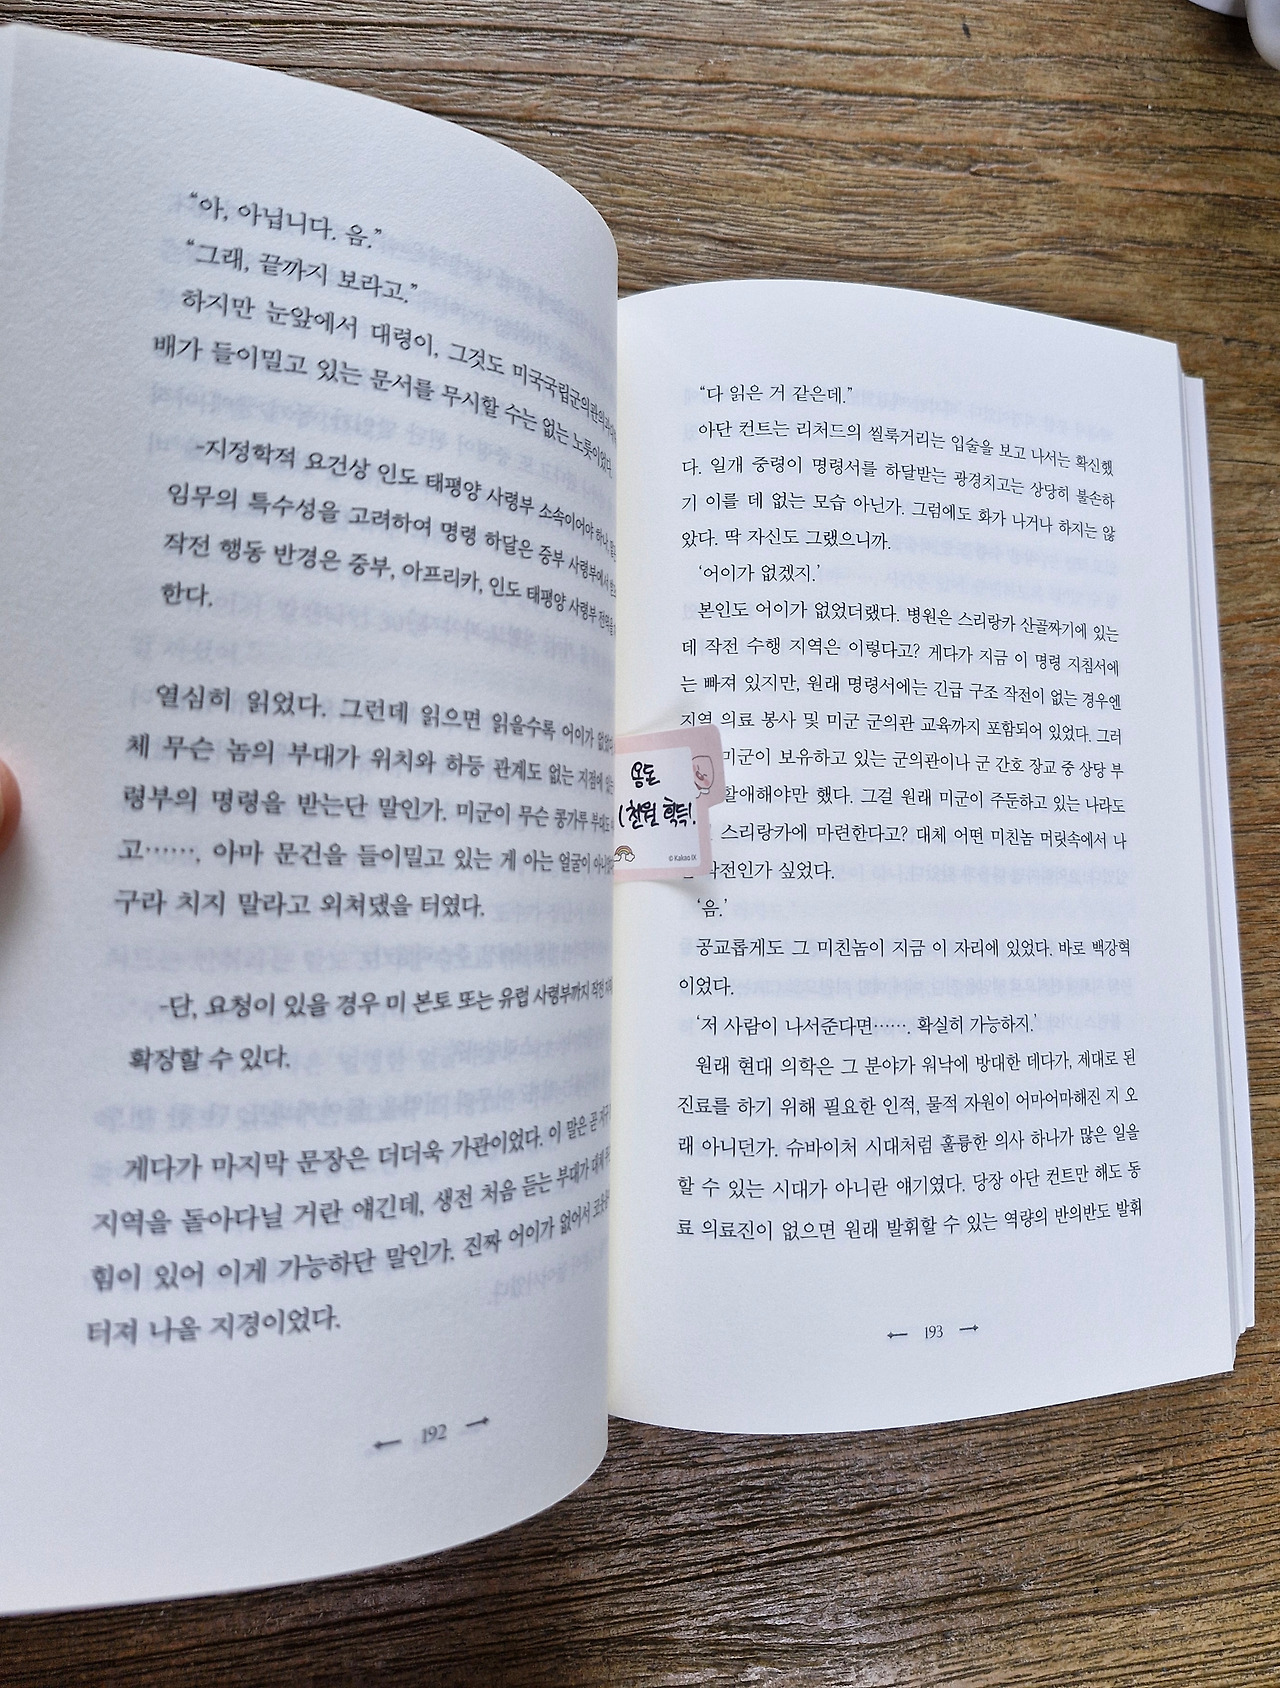 “아, 아닙니다. 음.”
“그래, 끝까지 보라고.”
하지만 눈앞에서 대령이, 그것도 미국국립군의관의과대학
배가 들이밀고 있는 문서를 무시할 수는 없는 노릇이었다.
-지정학적 요건상 인도 태평양 사령부 소속이어야 하나,
임무의 특수성을 고려하여 명령 하달은 중부 사령부에서
작전 행동 반경은 중부, 아프리카, 인도 태평양 사령부 전역을
한다.
열심히 읽었다. 그런데 읽으면 읽을수록 어이가 없었다.
체 무슨 놈의 부대가 위치와 하등 관계도 없는 지점에 있는
령부의 명령을 받는단 말인가. 미군이 무슨 콩가루 부대도
고……, 아마 문건을 들이밀고 있는 게 아는 얼굴이 아니었다
구라 치지 말라고 외쳐댔을 터였다.
-단, 요청이 있을 경우 미 본토 또는 유럽 사령부까지 작전
확장할 수 있다.
게다가 마지막 문장은 더더욱 가관이었다. 이 말은 곧
지역을 돌아다닐 거란 얘긴데, 생전 처음 듣는 부대가 대체
힘이 있어 이게 가능하단 말인가. 진짜 어이가 없어서
터져 나올 지경이었다.
192
“다 읽은 거 같은데.”
아단 컨트는 리처드의 씰룩거리는 입술을 보고 나서는 확신했
다. 일개 중령이 명령서를 하달받는 광경치고는 상당히 불손하
기 이를 데 없는 모습 아닌가. 그럼에도 화가 나거나 하지는 않
았다. 딱 자신도 그랬으니까.
‘어이가 없겠지.’
본인도 어이가 없었더랬다. 병원은 스리랑카 산골짜기에 있는
데 작전 수행 지역은 이렇다고? 게다가 지금 이 명령 지침서에
는 빠져 있지만, 원래 명령서에는 긴급 구조 작전이 없는 경우엔
지역 의료 봉사 및 미군 군의관 교육까지 포함되어 있었다. 그러
미군이 보유하고 있는 군의관이나 군 간호 장교 중 상당 부
할애해야만 했다. 그걸 원래 미군이 주둔하고 있는 나라도
스리랑카에 마련한다고? 대체 어떤 미친놈 머릿속에서 나
작전인가 싶었다.
‘음.’
공교롭게도 그 미친놈이 지금 이 자리에 있었다. 바로 백강혁
이었다.
‘저 사람이 나서준다면……. 확실히 가능하지.’
원래 현대 의학은 그 분야가 워낙에 방대한 데다가, 제대로 된
진료를 하기 위해 필요한 인적, 물적 자원이 어마어마해진 지 오
래 아니던가. 슈바이처 시대처럼 훌륭한 의사 하나가 많은 일을
할 수 있는 시대가 아니란 얘기였다. 당장 아단 컨트만 해도 동
료 의료진이 없으면 원래 발휘할 수 있는 역량의 반의반도 발휘
193
용돈
천원 획득!
© Kakao IX